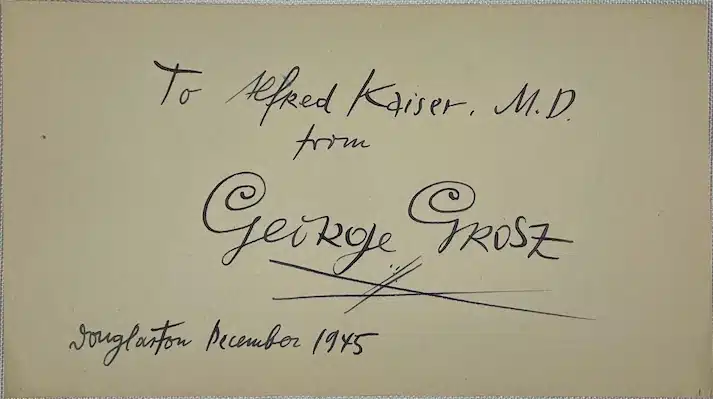 To Alfred Kaiser, M.D.
from
George Grosz
Douglaston December 1945